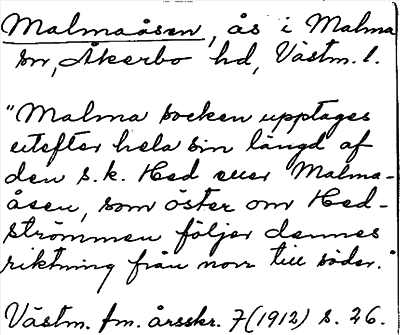 Malmaåsen, ås i Malma
sn, Åkerbo hd, Västm. l.
"Malma socken upptages
utefter hela sin längd af
den s.k. Hed eller Malma-
åsen, som öster om Hed-
strömmen följer dennes
riktning från norr till söder."
Västm. fm. årsskr. 7 (1912) s. 26.